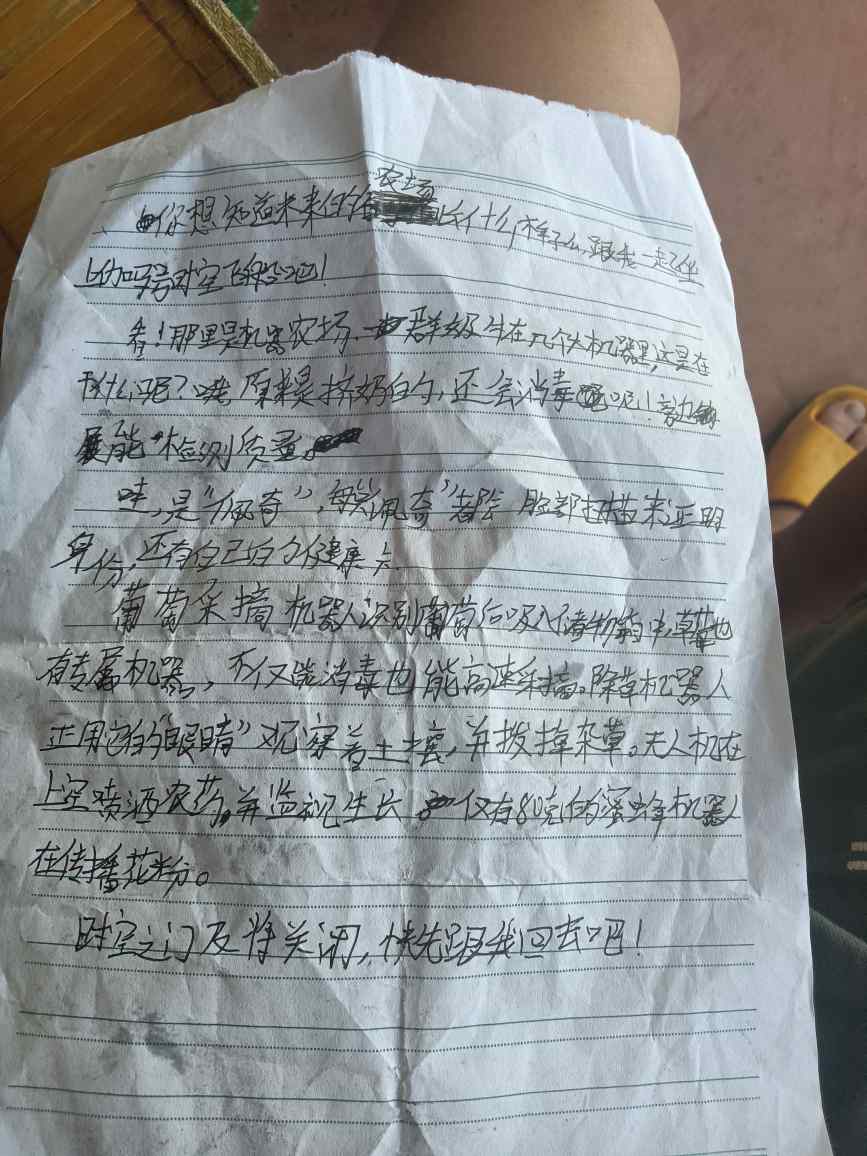 你想知道未来的农场长什么样子么,跟我一起坐
上号时空飞船吧!
看!那里是机器农场.一群奶牛在几个大机器里,这是在
干什么呢?哦原来是挤奶的,还会消毒呢!旁边
能检测质量。
哇,是“佩奇”,每只“佩奇”都会脸部扫描来证明
身份,还有自己的健康卡.
葡萄采摘机器人识别葡萄后吸入储物箱中,草莓也
有专属机器,不仅能消毒也能高速采摘。除草机器人
正用它的“眼睛”观察着土壤,并拨掉杂草。无人机在
上空喷洒农药。并监视生长 仅有80克的蜜蜂机器人
在传播花粉。
时空之门及将关闭,快先跟我回去吧!